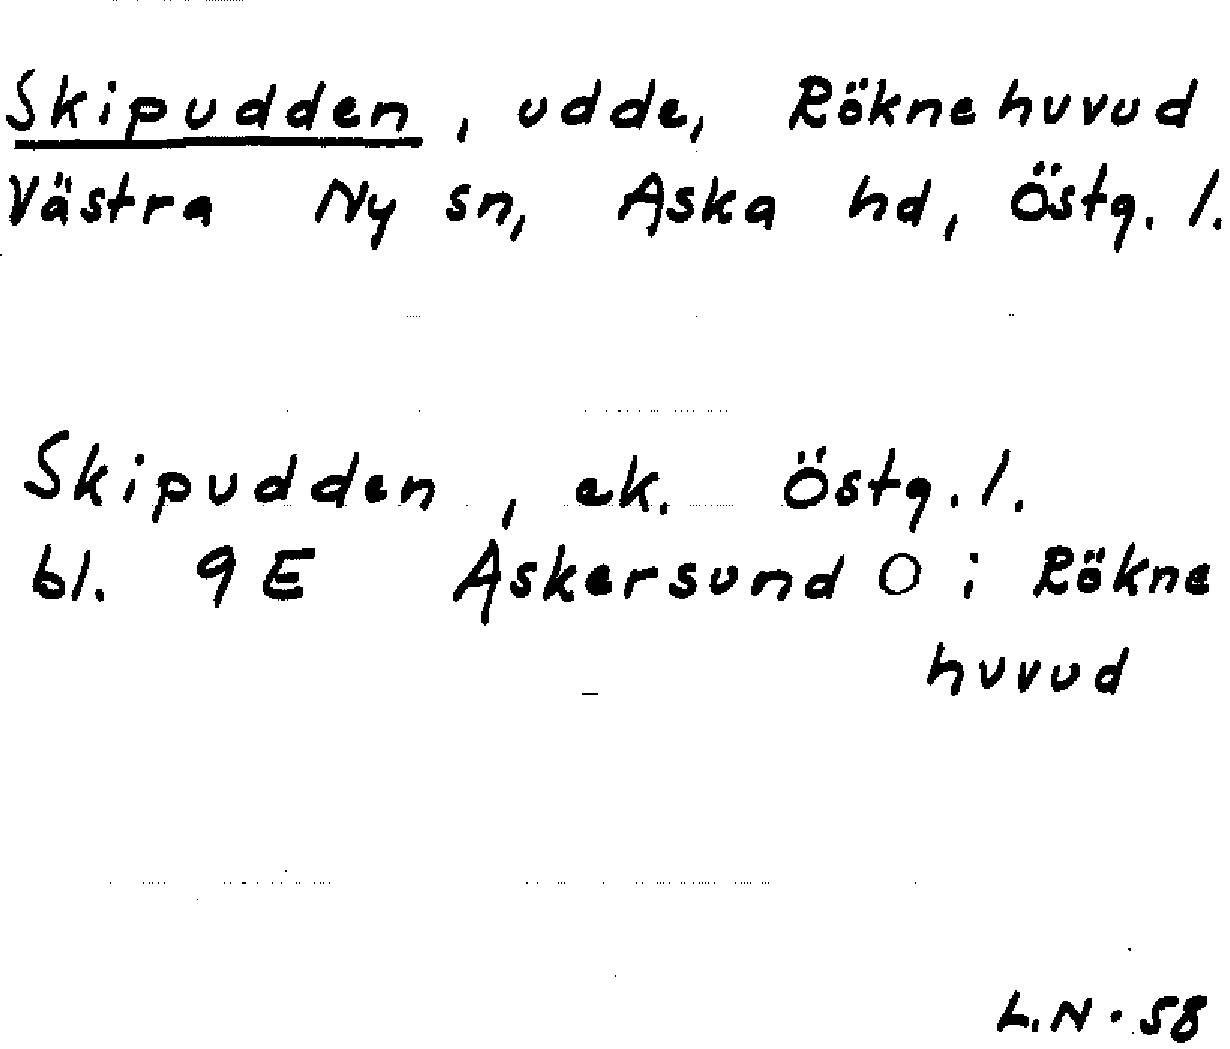 Skipudden, udde, Röknehuvud
Västra Ny sn, Aska hd, Östg. l.
Skipudden, ek. Östg. l.
bl. 9E Askersund O i Rökne
huvud
L.N. 58